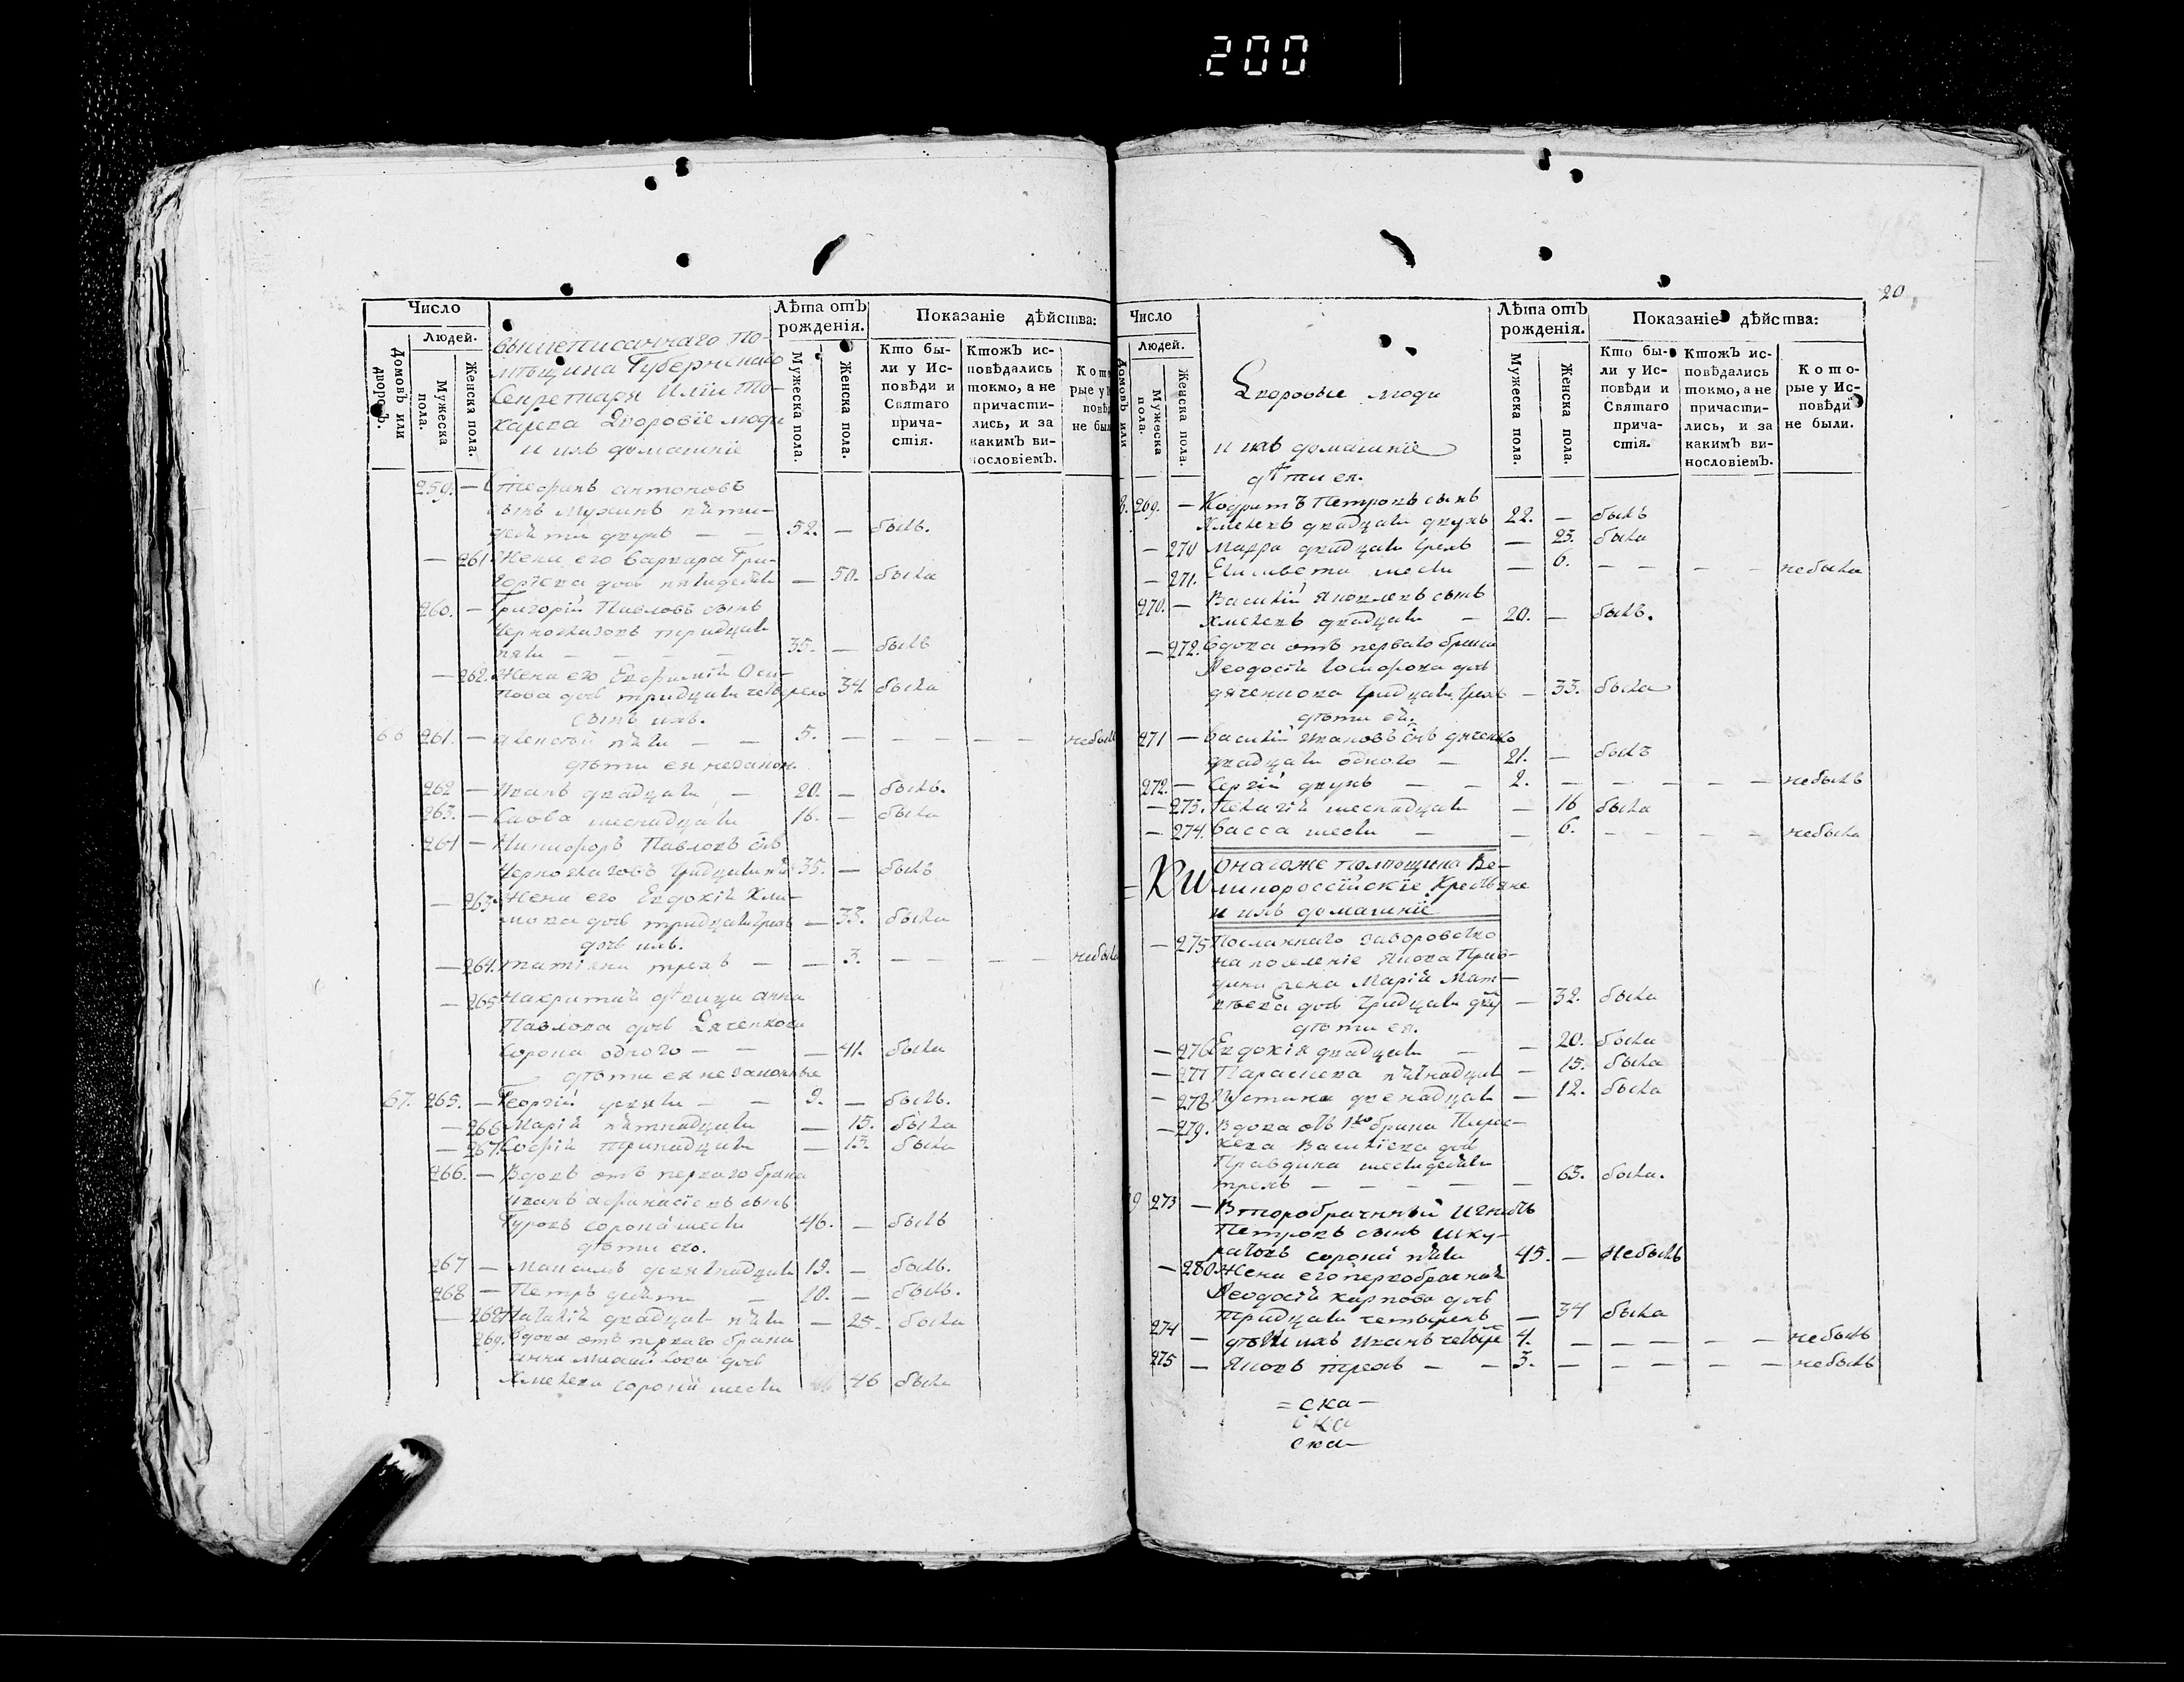 200
20
Число
Людей.
Домовъ или дворовъ.
Мужеска пола.
Женска пола.
вышеписаннаго по-
мѣщика Губернскаго
Секретаря Иліи То-
карева Дворовіе люди
и ихъ домашніе
Лѣта отъ рожденія.
Мужеска пола.
Женска пола.
Показаніе дѣйства:
Кто бы-
ли у Ис-
повѣди и
Святаго
прича-
стія.
Ктожъ ис-
повѣдались
токмо, а не
причасти-
лись, и за
какимъ ви-
нословіемъ.
259. — антоновъ
сынъ пяти-
десяти двухъ — — 52. — былъ.
— 261 Жена его Варвара Гри-
горіева дочь пятидесяти — 50. была
260. — Григорій Павловъ сынъ
тридцати
пяти — 35. — былъ
— 262. Жена его Евфимія Оси-
пова дочь тридцати четырехъ 34. была
сынъ ихъ.
66 261. — Алексѣй пяти — — 5. — — — — — небылъ
дѣти ея незакон.
262 — Иванъ двадцати — 20. — былъ.
263. — Савва шеснадцати 16. — былъ
264 — Никифоръ Павловъ снъ
тридцати пяти 35. — былъ
— 263. Жена его Евдокія Кли-
мова дочь тридцати трехъ — 33. была
дочь ихъ.
— 264. татіана трехъ — — 3. — — — — небыла
— 265 Накритая дѣвица анна
Павлова дочь Дяченкова
сорока одного — — — 41. была
дѣти ея незаконные
67. 265. — Георгій девяти — — 9. — былъ.
— 266 Марія пятнадцати — 15. была
— 267 Софія тринадцати — 13. была
266. — Вдовъ отъ перваго брака
Иванъ афанасіевъ сынъ
Гуровъ сорока шести 46. — былъ
дѣти его.
267 — Максимъ девятнадцати 19. — былъ.
268 — Петръ десяти — 10. — былъ.
— 268 Наталія двадцати пяти — 25. была
269. Вдова отъ перваго брака
анна дочь
Хмелева сорока шести 46 была
Число
Людей.
Домовъ или
Мужеска пола.
Женска пола.
Дворовые люди
и ихъ домашніе
дѣти ея.
Лѣта отъ рожденія.
Мужеска пола.
Женска пола.
Показаніе дѣйства:
Кто бы-
ли у Ис-
повѣди и
Святаго
прича-
стія.
Ктожъ ис-
повѣдались
токмо, а не
причасти-
лись, и за
какимъ ви-
нословіемъ.
Кото-
рые у Ис-
повѣди
не были.
269. — Кодратъ Петровъ сынъ
Хмелевъ двадцати двухъ 22. — былъ
— 270 Марфа двадцати трехъ — 23. была
— 271. Елисавета шести — 6. — — — — небыла
270. — Василій Яковлевъ сынъ
Хмелевъ двадцати — 20. — былъ.
— 272. Вдова отъ перваго брака
Ѳеодосія дочь
дяченкова тридцати трехъ — 33. была
дѣти ей.
271 — Василій Ивановъ снъ дяченко
двадцати одного — 21. — былъ
272. — Сергій двухъ — — 2. — — — — — небылъ
— 273. Пелагія шеснадцати — 16 была
— 274. Васса шести — — 6. — — — — небыла
онагоже помѣщика Ве-
ликороссійскіе Крестьяне
и ихъ домашніе
— 275 Посланнаго
на поселеніе Якова Прав-
дина жена Марія Мат-
вѣева дочь тридцати дву — 32. была
дѣти ея.
— 276 Евдокія двадцати — — 20. была
— 277 Параскева пятнадцати — 15. была
— 278 Устина двенадцати — 12. была
— 279. Вдова отъ 1го брака
Василіева дочь
Правдина шестидесяти
трехъ — — — — — 63. была.
273 — Второбрачный Игнатъ
Петровъ сынъ Шку-
ратовъ сорока пяти 45. — Небылъ
— 280 Жена его первобрачная
Ѳеодосія карпова дочь
тридцати четырехъ — 34 была
274 — дѣти ихъ Иванъ четыре 4. — — — — — небылъ
275 — Яковъ трехъ — — 3. — — — — — небылъ
= ска —
ска
ска—